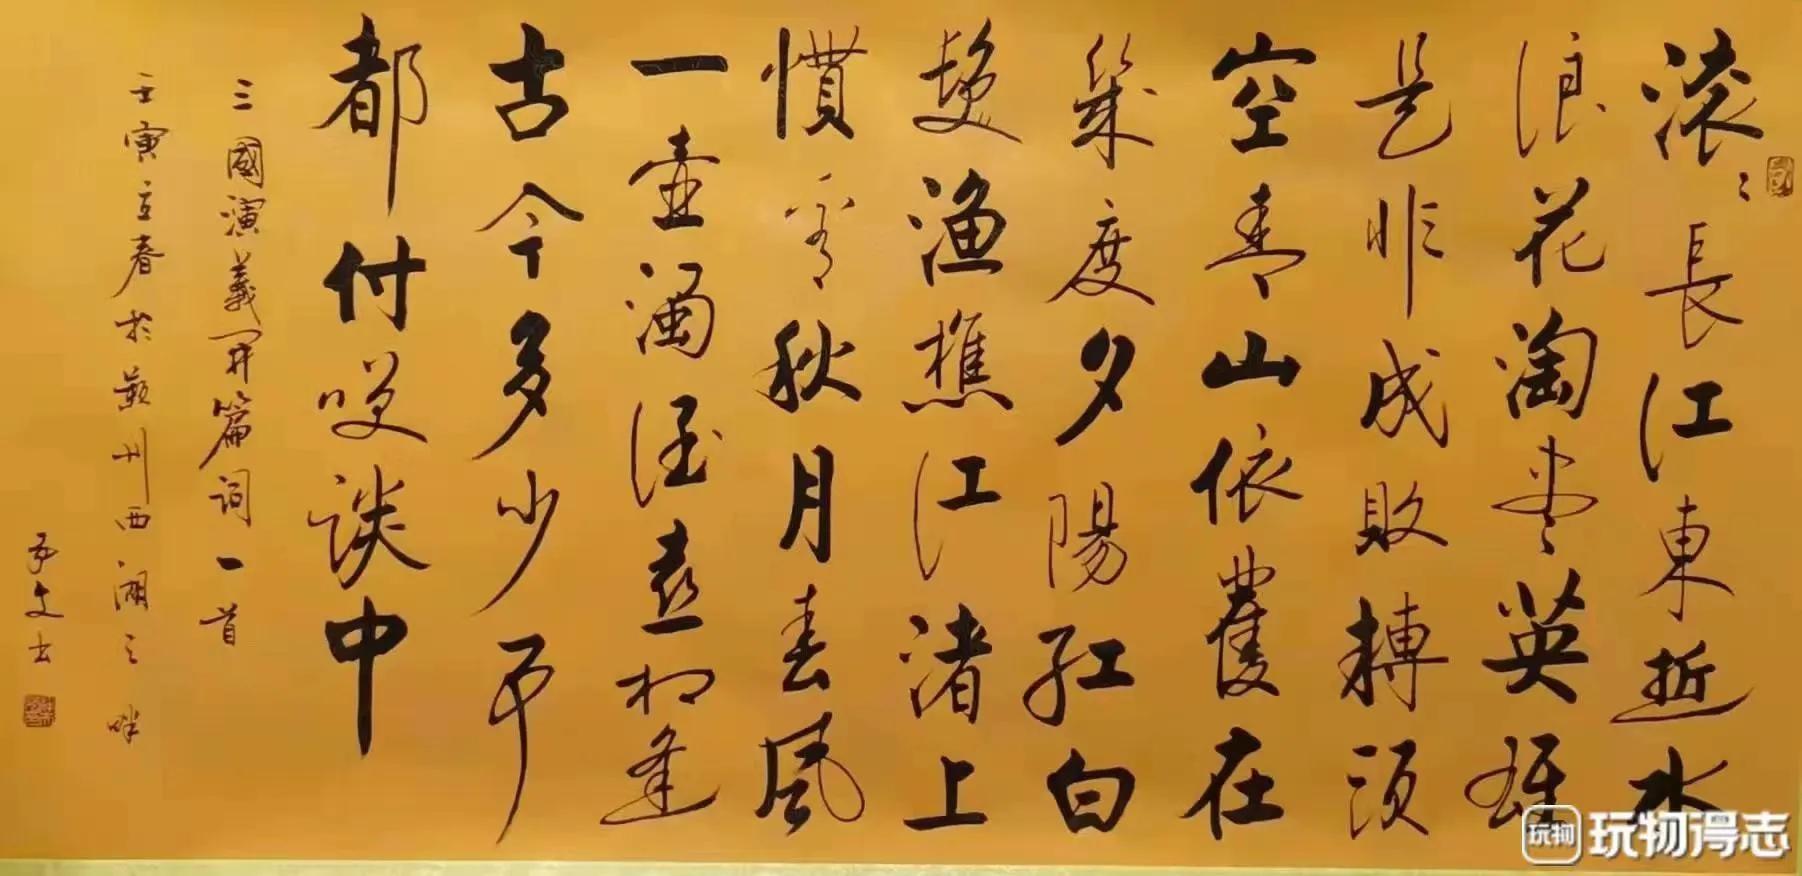 滚〻長江東逝水
浪花淘尽英雄
是非成敗轉頭
空青山依舊在
幾度夕陽紅白
髮渔樵江渚上
慣看秋月春風
一壺濁酒喜相逢
古今多少事
都付笑談中
三國演義開篇詞一首
壬寅立春於颍州西湖之畔
玩物
玩物得志